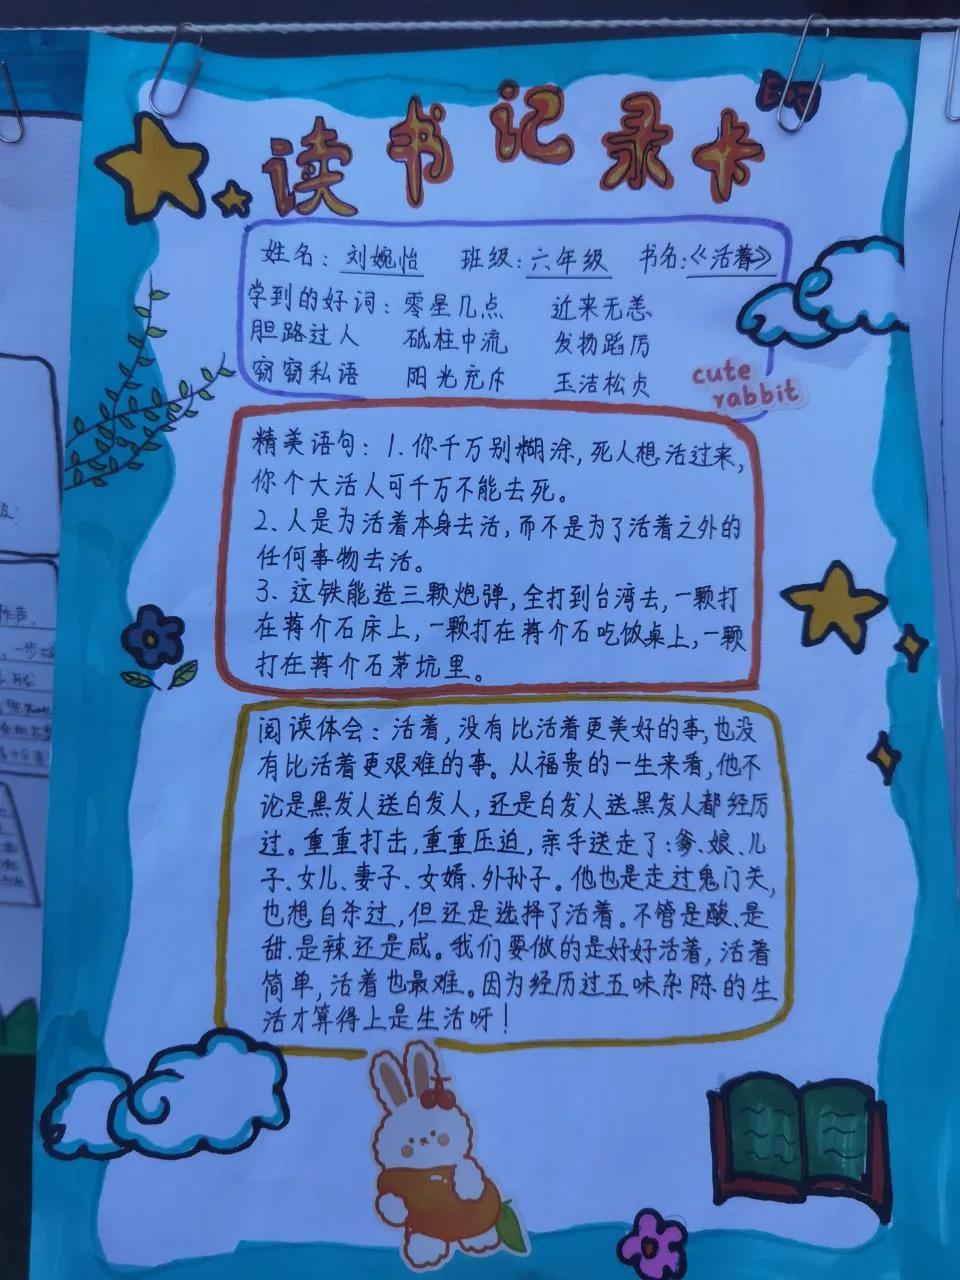 读书记录卡
姓名：刘婉怡 班级：六年级 书名：《活着》
学到的好词：零星几点 近来无恙
胆路过人 砥柱中流 发扬蹈厉
窃窃私语 阳光充斥 玉洁松贞
cute
rabbit
精美语句：1.你千万别糊涂，死人想活过来，
你个大活人可千万不能去死。
2、人是为活着本身去活，而不是为了活着之外的
任何事物去活。
3、这铁能造三颗炮弹，全打到台湾去，一颗打
在蒋介石床上，一颗打在蒋介石吃饭桌上，一颗
打在蒋介石茅坑里。
阅读体会：活着，没有比活着更美好的事，也没
有比活着更艰难的事。从福贵的一生来看，他不
论是黑发人送白发人，还是白发人送黑发人都经历
过。重重打击，重重压迫，亲手送走了：爹、娘、儿
子、女儿、妻子、女婿、外孙子。他也是走过鬼门关，
也想自杀过，但还是选择了活着。不管是酸、是
甜、是辣还是咸。我们要做的是好好活着，活着
简单，活着也最难。因为经历过五味杂陈的生
活才算得上是生活呀！